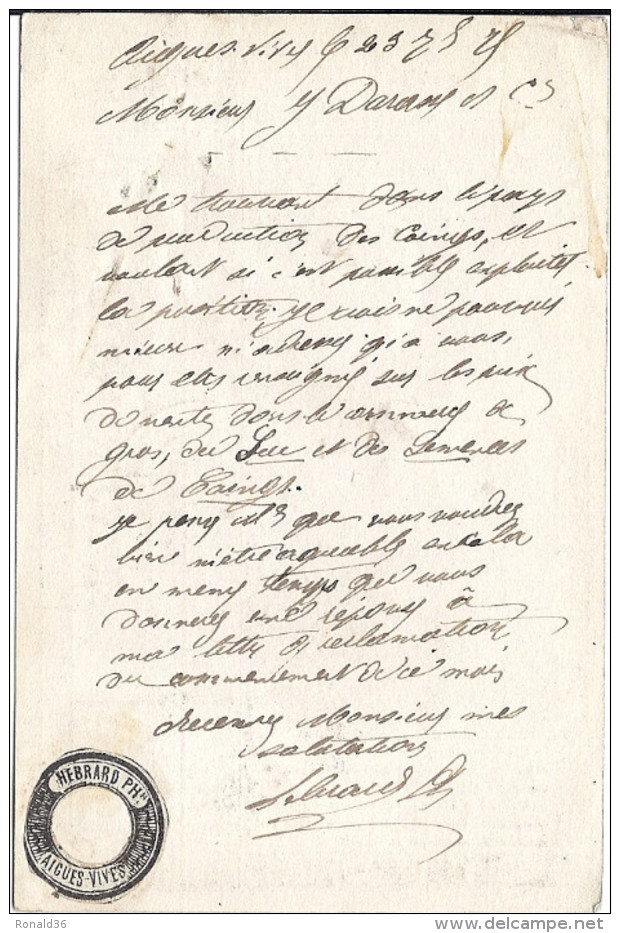 Aigues-vives le 23 7
Monsieur Darasse et Cie
Me trouvant dans le pays
de production des Coings, et
voulant si c'est possible exploiter
la position je crois ne pouvoir
mieux m'adresser qu'à vous,
pour être renseigné sur les prix
de vente dans le commerce de
gros, du Suc et des Semences
de Coings.
Je pense que vous voudrez
bien m'être agréable en cela
en meme temps que vous
donnerez une réponse à
ma lettre de reclamation
du commencement de ce mois
Recevez Monsieur mes
salutations
Hebrard
HEBRARD PH^en
AIGUES-VIVES
Ronald36
www.delcampe.net